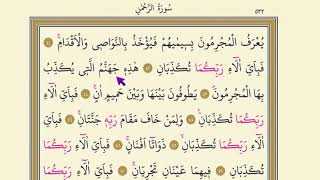 سُورَةُ الرَّحْمٰنِ ٥٣٢
يُعْرَفُ الْمُجْرِمُونَ بِسِيمٰيهُمْ فَيُؤْخَذُ بِالنَّوَاصِي وَالْاَقْدَامِ ۚ ٤١
فَبِاَيِّ اٰلَٓاءِ رَبِّكُمَا تُكَذِّبَانِ ٤٢ هٰذِهِ جَهَنَّمُ الَّتِي يُكَذِّبُ
بِهَا الْمُجْرِمُونَ ۢ ٤٣ يَطُوفُونَ بَيْنَهَا وَبَيْنَ حَمِيمٍ اٰنٍ ۚ ٤٤ فَبِاَيِّ اٰلَٓاءِ
رَبِّكُمَا تُكَذِّبَانِ ٤٥ وَلِمَنْ خَافَ مَقَامَ رَبِّهِ جَنَّتَانِ ۚ ٤٦ فَبِاَيِّ
اٰلَٓاءِ رَبِّكُمَا تُكَذِّبَانِ ۙ ٤٧ ذَوَاتَٓا اَفْنَانٍ ۚ ٤٨ فَبِاَيِّ اٰلَٓاءِ رَبِّكُمَا
تُكَذِّبَانِ ٤٩ فِيهِمَا عَيْنَانِ تَجْرِيَانِ ۚ ٥٠ فَبِاَيِّ اٰلَٓاءِ رَبِّكُمَا